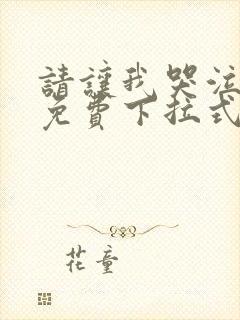 請讓我哭泣
免費下拉式
花童